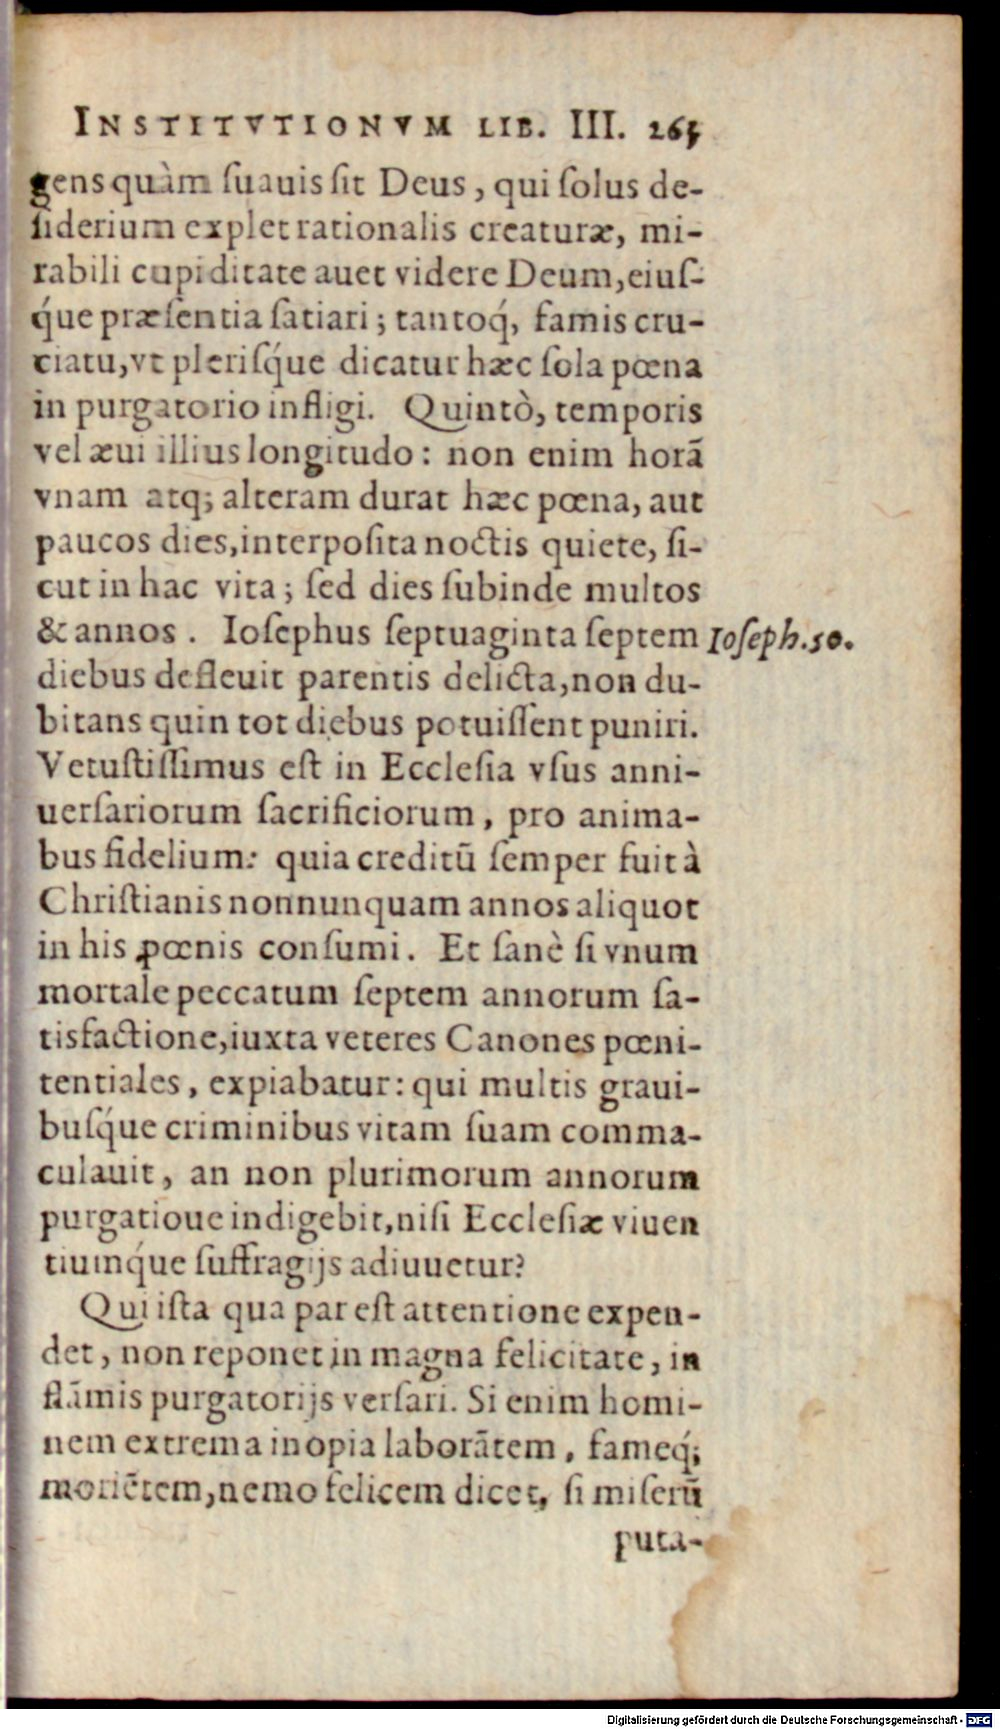 INSTITVTIONVM LIB. III. 265
gens quàm ſuauis ſit Deus, qui ſolus de-
ſiderium explet rationalis creaturæ, mi-
rabili cupiditate auet videre Deum, eiuſ-
q́ue præſentia ſatiari; tantoq́, famis cru-
ciatu, vt pleriſq́ue dicatur hæc ſola pœna
in purgatorio infligi. Quintò, temporis
vel æui illius longitudo: non enim horā
vnam atq; alteram durat hæc pœna, aut
paucos dies, interpoſita noctis quiete, ſi-
cut in hac vita; ſed dies ſubinde multos
& annos. Ioſephus ſeptuaginta ſeptem Ioſeph. 50.
diebus defleuit parentis delicta, non du-
bitans quin tot diebus potuiſſent puniri.
Vetuſtiſſimus eſt in Eccleſia vſus anni-
uerſariorum ſacrificiorum, pro anima-
bus fidelium: quia creditū ſemper fuit à
Chriſtianis nonnunquam annos aliquot
in his pœnis conſumi. Et ſanè ſi vnum
mortale peccatum ſeptem annorum ſa-
tisfactione, iuxta veteres Canones pœni-
tentiales, expiabatur: qui multis graui-
buſq́ue criminibus vitam ſuam comma-
culauit, an non plurimorum annorum
purgatioue indigebit, niſi Eccleſiæ viuen
tiumq́ue ſuffragijs adiuuetur?
Qui iſta qua par eſt attentione expen-
det, non reponet in magna felicitate, in
flāmis purgatorijs verſari. Si enim homi-
nem extrema inopia laborātem, fameq́;
moriētem, nemo felicem dicet, ſi miſerū
puta-
Digitalisierung gefördert durch die Deutsche Forschungsgemeinschaft - DFG